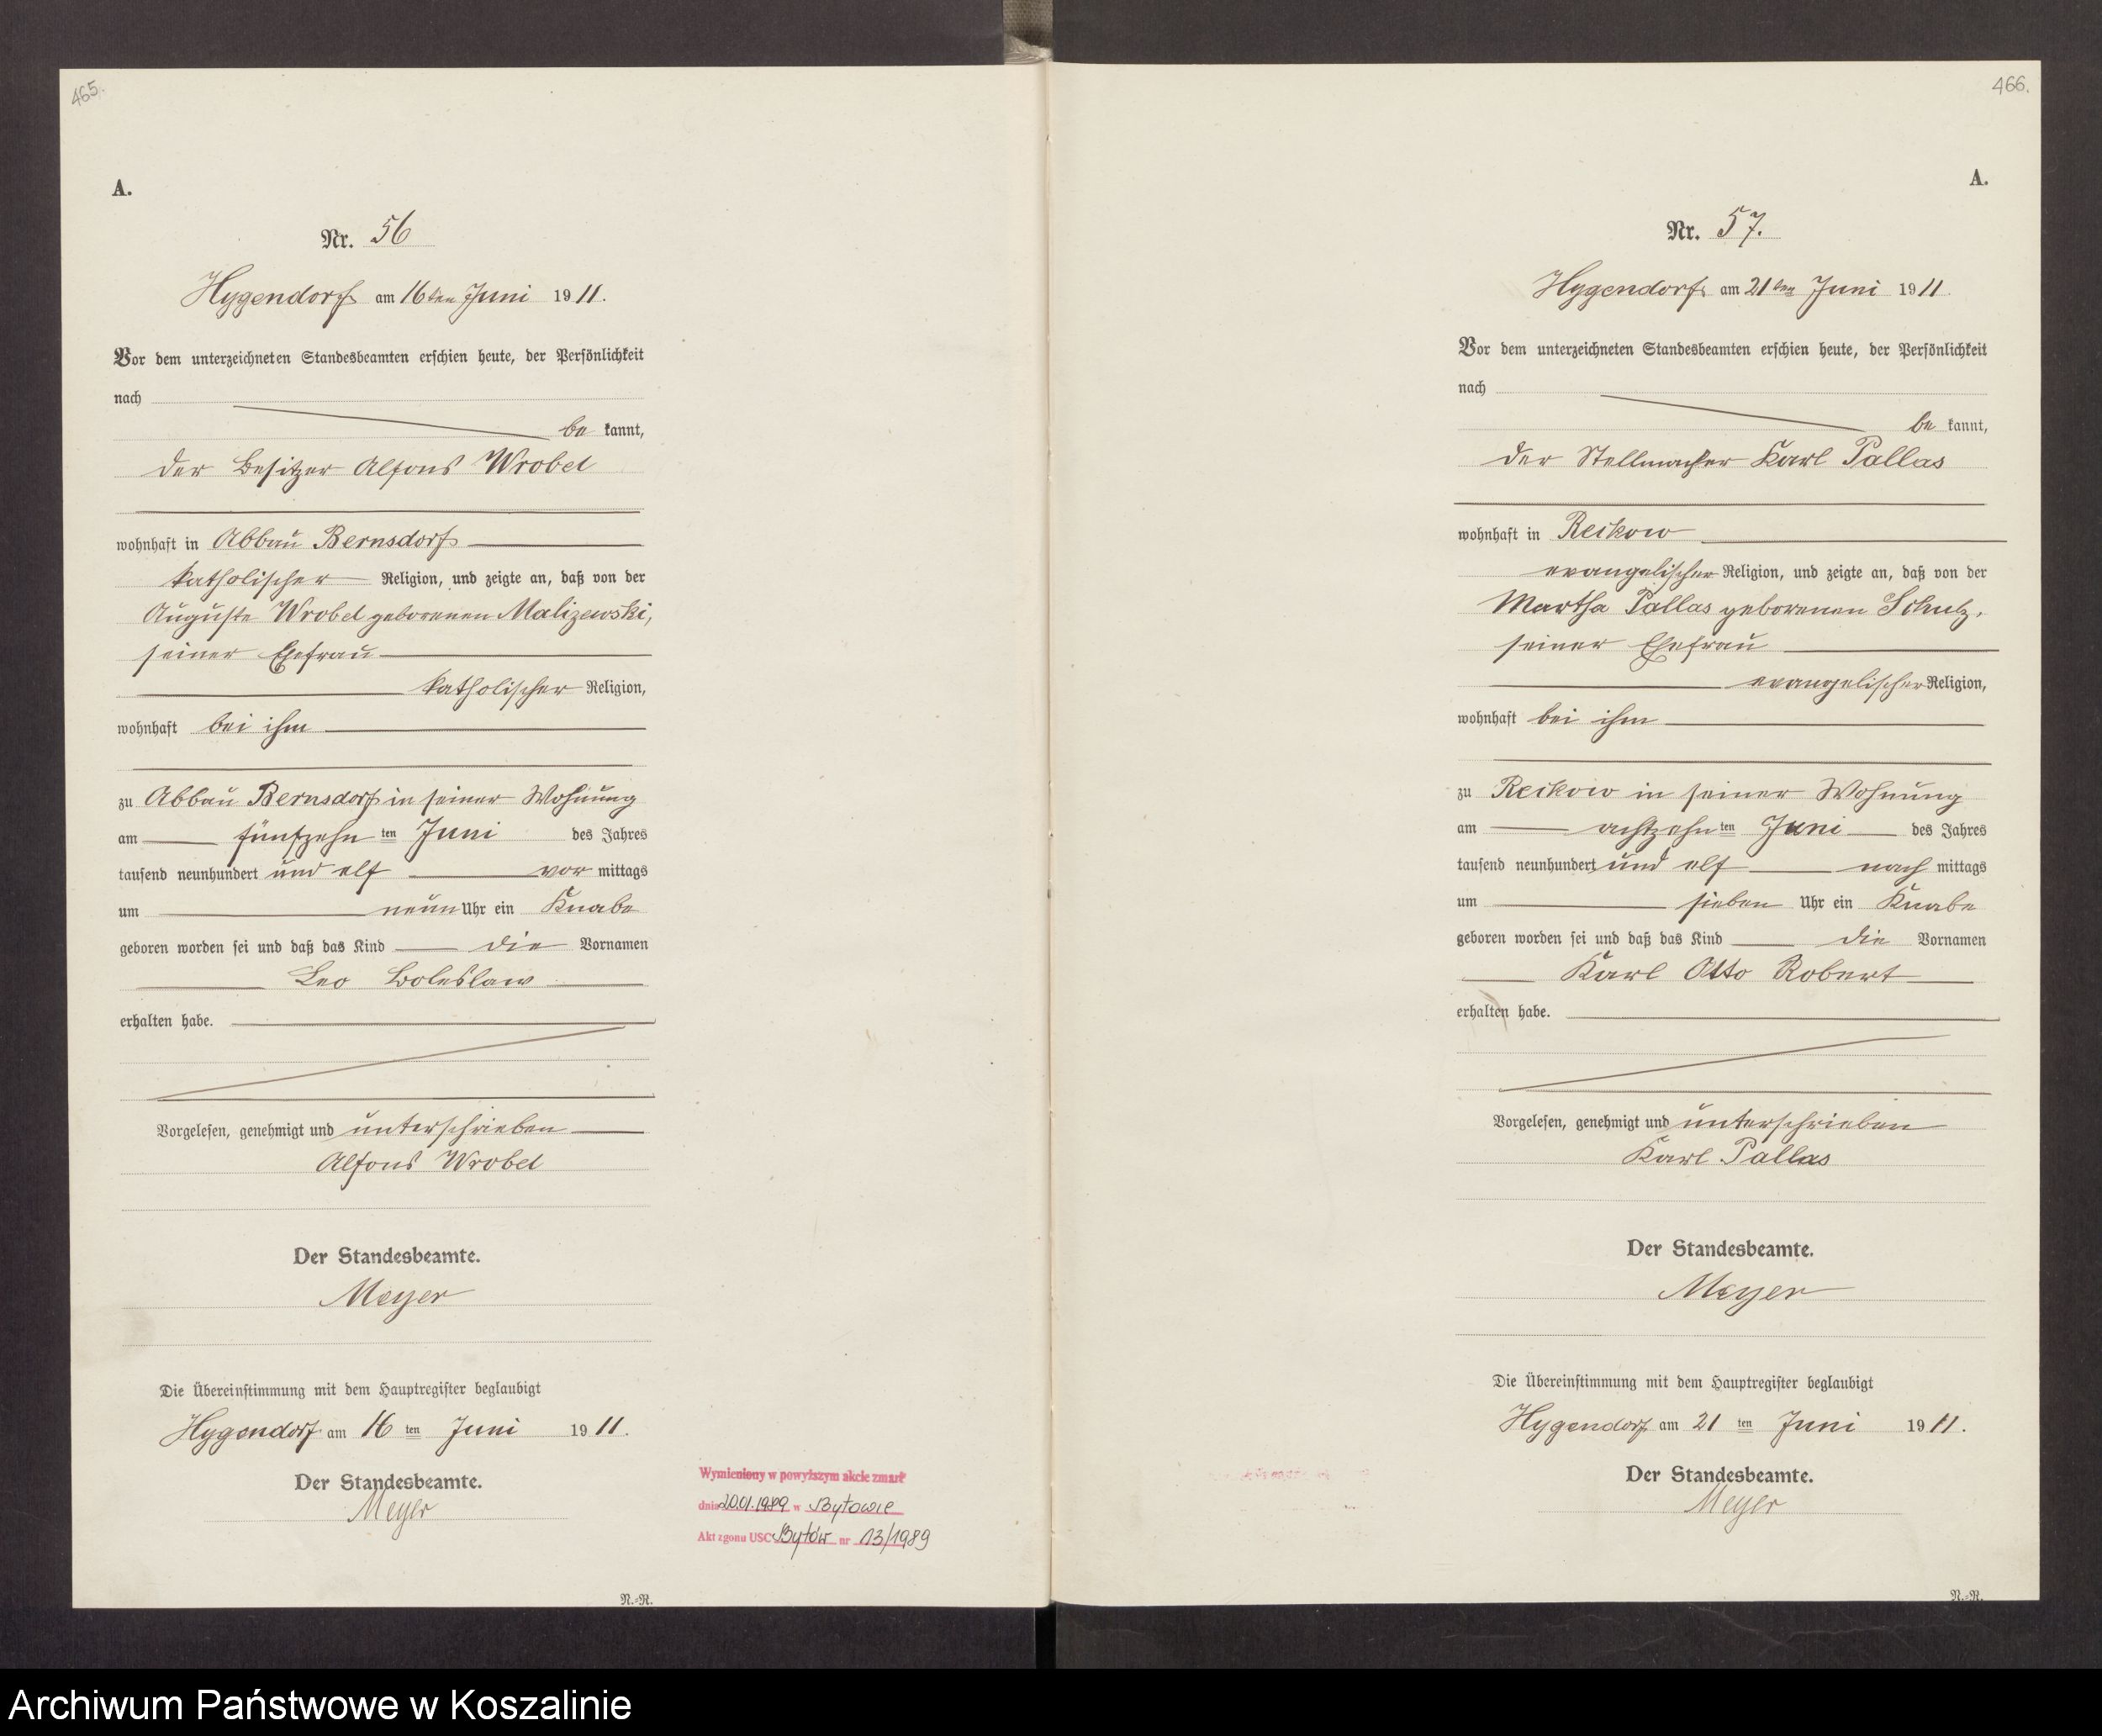 465.
A.
Nr. 56
Hygendorf am 16ten Juni 1911.
Vor dem unterzeichneten Standesbeamten erschien heute, der Persönlichkeit
nach
be kannt,
der Besitzer Alfons Wrobel
wohnhaft in Abbau Bernsdorf
katholischer Religion, und zeigte an, daß von der
Auguste Wrobel geborenen Malizewski,
seiner Ehefrau
katholischer Religion,
wohnhaft bei ihm
zu Abbau Bernsdorf in seiner Wohnung
am fünfzehn ten Juni des Jahres
tausend neunhundert und elf vor mittags
um neun Uhr ein Knabe
geboren worden sei und daß das Kind die Vornamen
Leo Boleslaw
erhalten habe.
Vorgelesen, genehmigt und unterschrieben
Alfons Wrobel
Der Standesbeamte.
Meyer
Die Übereinstimmung mit dem Hauptregister beglaubigt
Hygendorf am 16 ten Juni 1911.
Der Standesbeamte.
Meyer
Wymieniony w powyższym akcie zmarł
dnia 20.01.1989 w Bytowie
Akt zgonu USC Bytów nr 13/1989
N.-R.
466.
A.
Nr. 57.
Hygendorf am 21ten Juni 1911.
Vor dem unterzeichneten Standesbeamten erschien heute, der Persönlichkeit
nach
be kannt,
der Stellmacher Karl Pallas
wohnhaft in Reikow
evangelischer Religion, und zeigte an, daß von der
Martha Pallas geborenen Schulz,
seiner Ehefrau
evangelischer Religion,
wohnhaft bei ihm
zu Reikow in seiner Wohnung
am achtzehn ten Juni des Jahres
tausend neunhundert und elf nach mittags
um sieben Uhr ein Knabe
geboren worden sei und daß das Kind die Vornamen
Karl Otto Robert
erhalten habe.
Vorgelesen, genehmigt und unterschrieben
Karl Pallas
Der Standesbeamte.
Meyer
Die Übereinstimmung mit dem Hauptregister beglaubigt
Hygendorf am 21 ten Juni 1911.
Der Standesbeamte.
Meyer
N.-R.
Archiwum Państwowe w Koszalinie